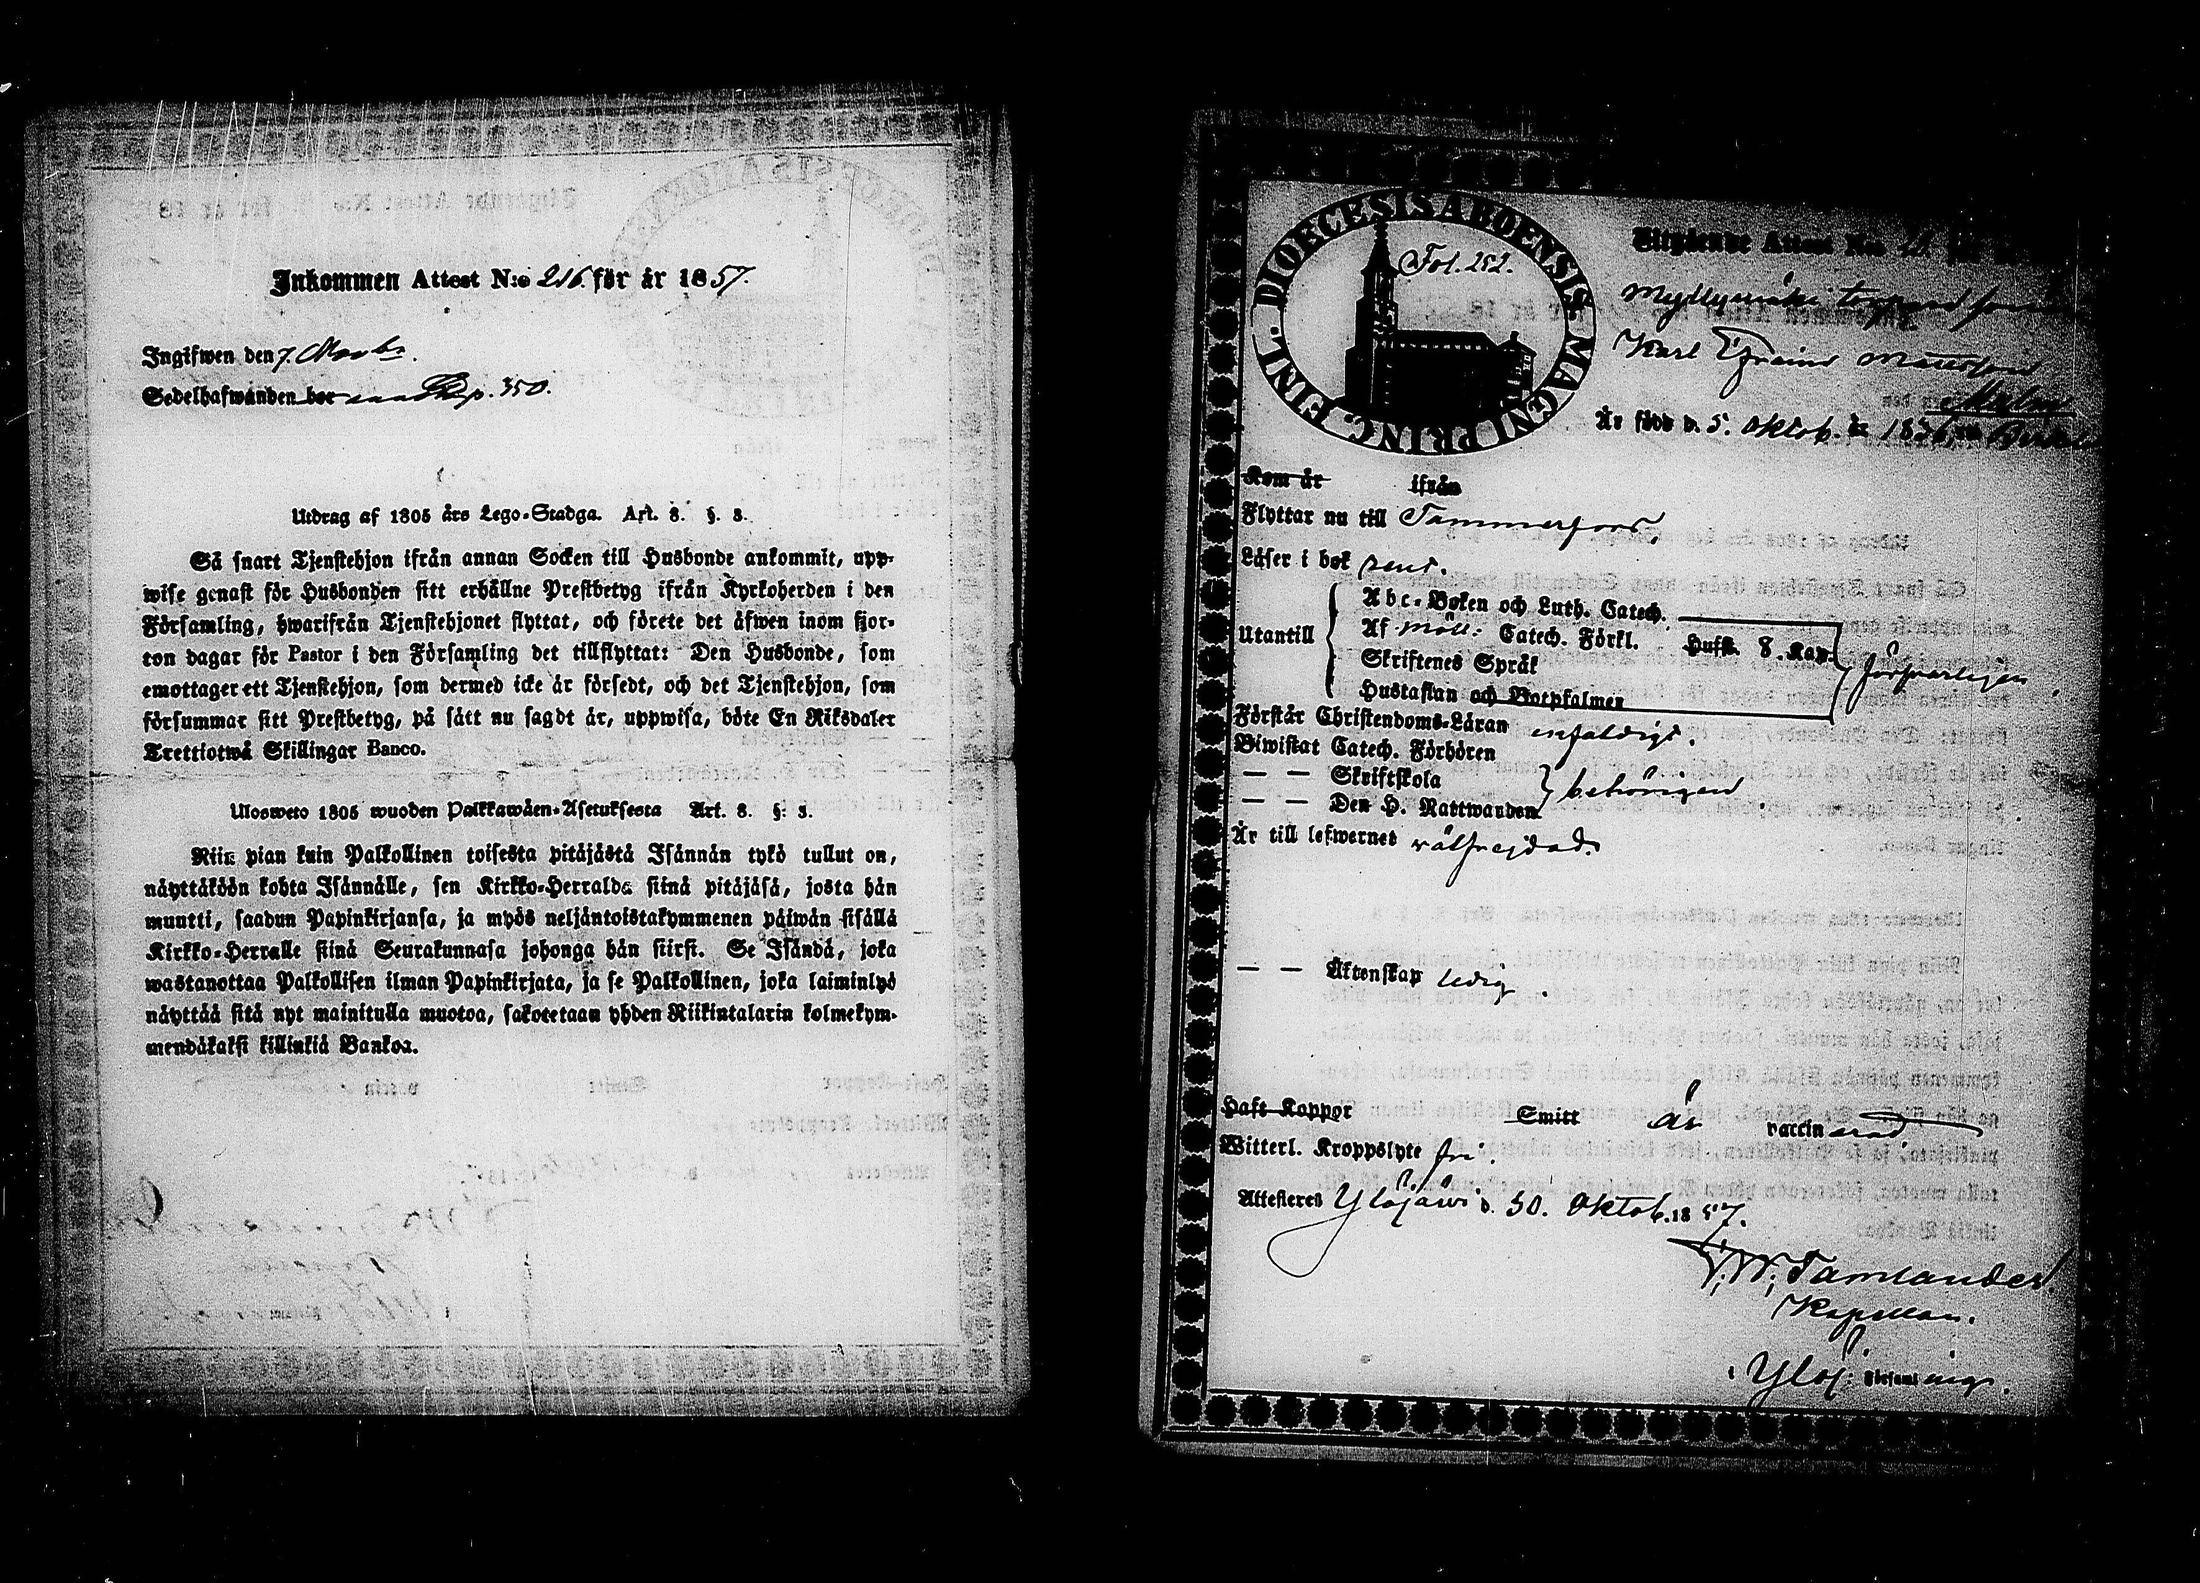 Inkommen Attest N:o 216. för år 1857.
Ingifwen den 7. Novbr.
Sedelhafwanden bor p. 350.
Utdrag af 1805 års Lego-Stadga. Art. 8. §. 3.
Så snart Tjenstehjon ifrån annan Socken till Husbonde ankommit, upp-
wise genast för Husbonden sitt erhållne Prestbetyg ifrån Kyrkoherden i den
Församling, hwarifrån Tjenstehjonet flyttat, och förete det äfwen inom fjor-
ton dagar för Pastor i den Församling det tillflyttat: Den Husbonde, som
emottager ett Tjenstehjon, som dermed icke är försedt, och det Tjenstehjon, som
försummar sitt Prestbetyg, på sätt nu sagdt är, uppwisa, böte En Riksdaler
Trettiotwå Skillingar Banco.
Ulosweto 1805 wuoden Palkkawäen-Asetuksesta Art. 8. §: 3.
Niin pian kuin Palkollinen toisesta pitäjästä Isännän tykö tullut on,
näyttäköön kohta Isännälle, sen Kirkko-Herralda siinä pitäjäsä, josta hän
muutti, saadun Papinkirjansa, ja myös neljäntoistakymmenen päiwän sisällä
Kirkko-Herralle siinä Seurakunnasa johonga hän siirsi. Se Isändä, joka
wastanottaa Palkollisen ilman Papinkirjata, ja se Palkollinen, joka laiminlyö
näyttää sitä nyt mainitulla muotoa, sakotetaan yhden Riikintalarin kolmekym-
mendäkaksi killinkiä Bankoa.
DIOECESIS ABOENSIS. MAGNI PRINC. FINL.
Fol. 252.
Utgående Attest N:o
Myllymäki torpare
Karl Efraim Mattsson
Är född d. 5. Oktob. år 1836,
Kom år ifrån
Flyttar nu till Tammerfors.
Läser i bok rent.
Utantill
Abc-Boken och Luth. Catech.
Af Möll: Catech. Förkl. Husk. 8. Kap.
Skriftenes Språk
Hustaflan och Botpsalmer
försvarligen.
Förstår Christendoms-Läran enfaldigt.
Biwistat Catech. Förhören
— — Skriftskola
— — Den H. Nattwarden
behörigen.
Är till lefwernet välfrejdad.
— — Äktenskap ledig.
Haft Koppor Smitt är vaccinerad
Witterl. Kroppslyte fri.
Attesteres Ylöjärvi d. 30. Oktob. 1857.
Tamlander.
Kapellan.
i Ylöj: Församling.